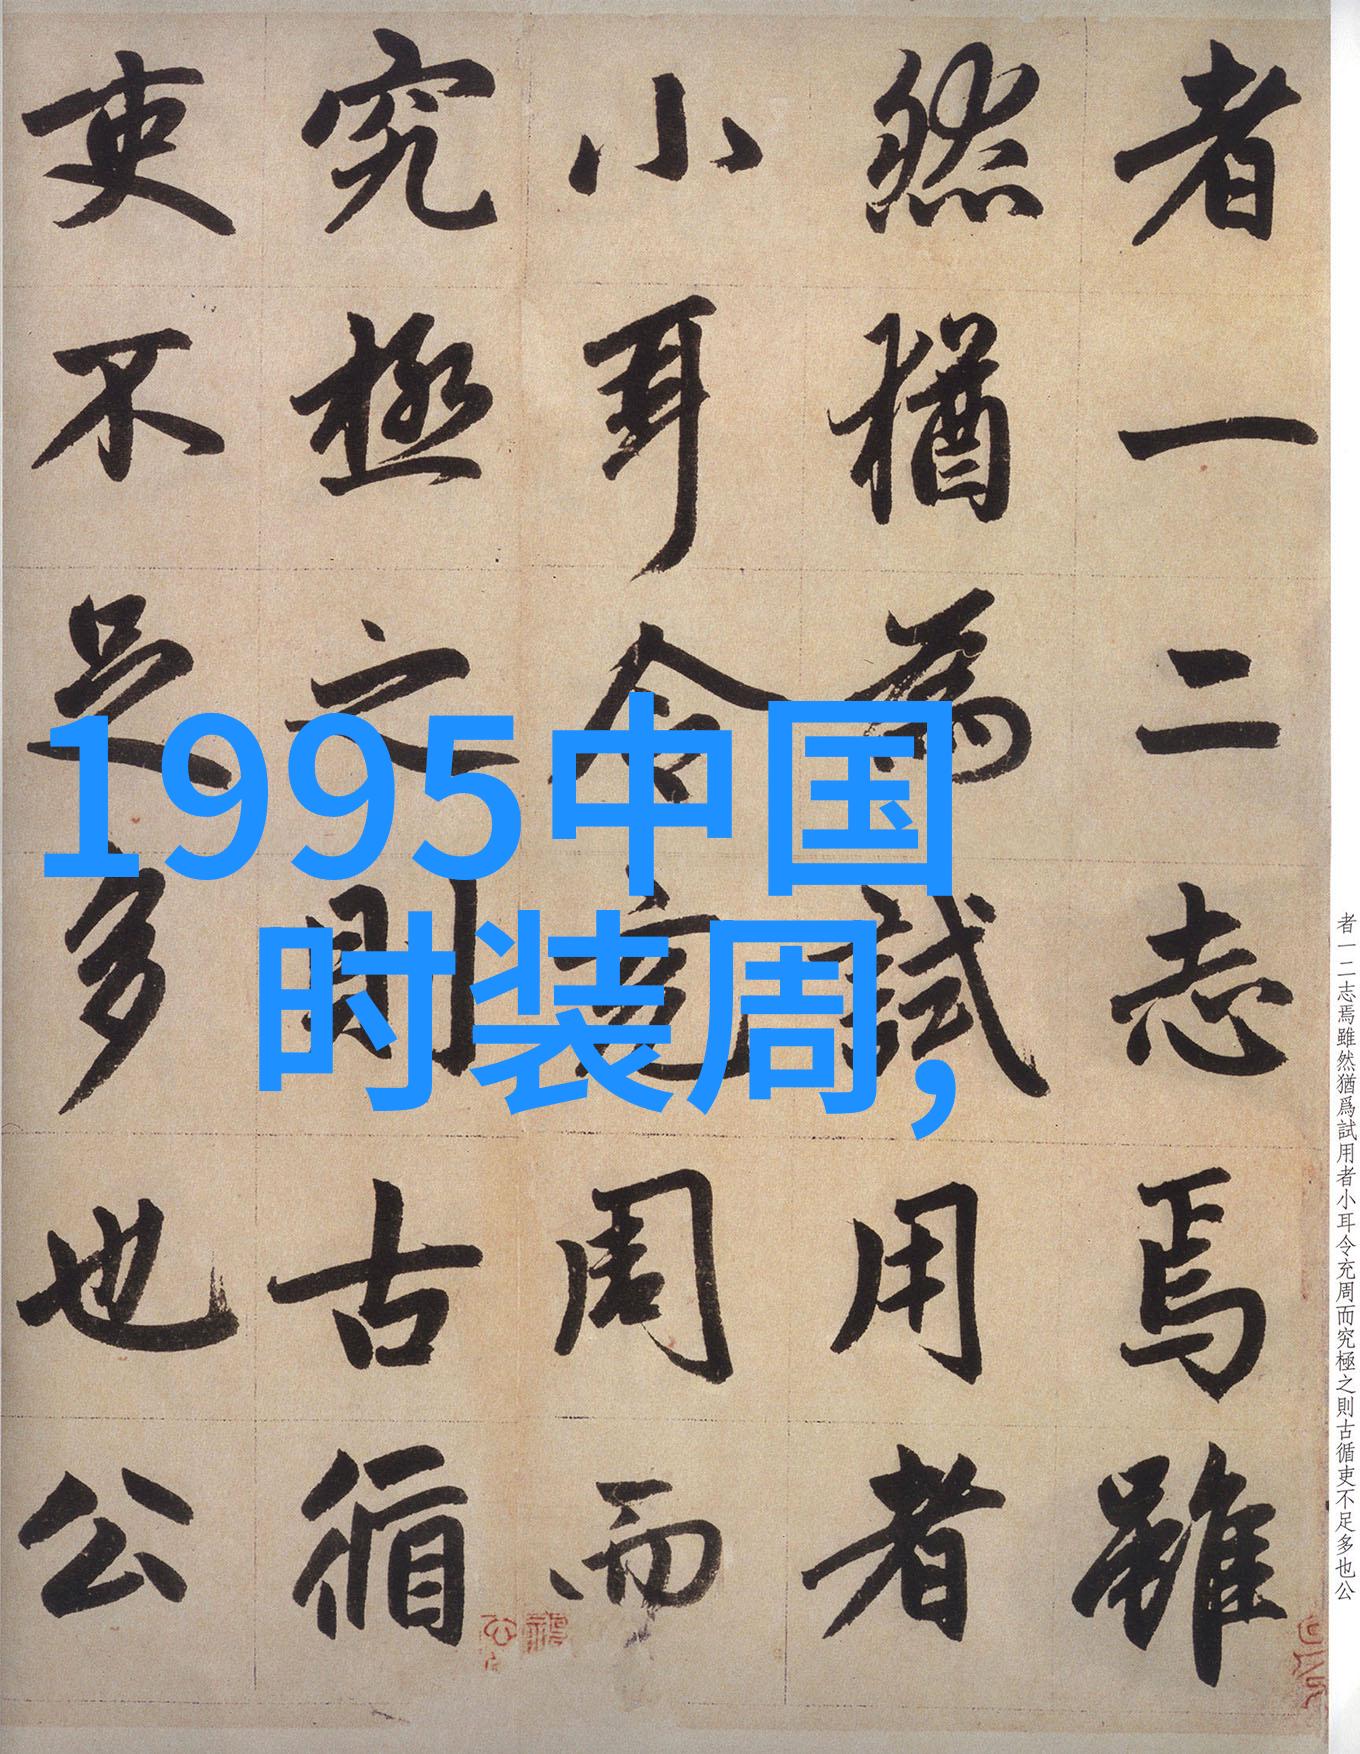 1995中国
时装周,
者一二志焉雖
然猶為試用者
小耳令充周而
究極之則古循
吏不足多也公
者一二志焉雖然猶爲試用者小耳令充周而究極之則古循吏不足多也公